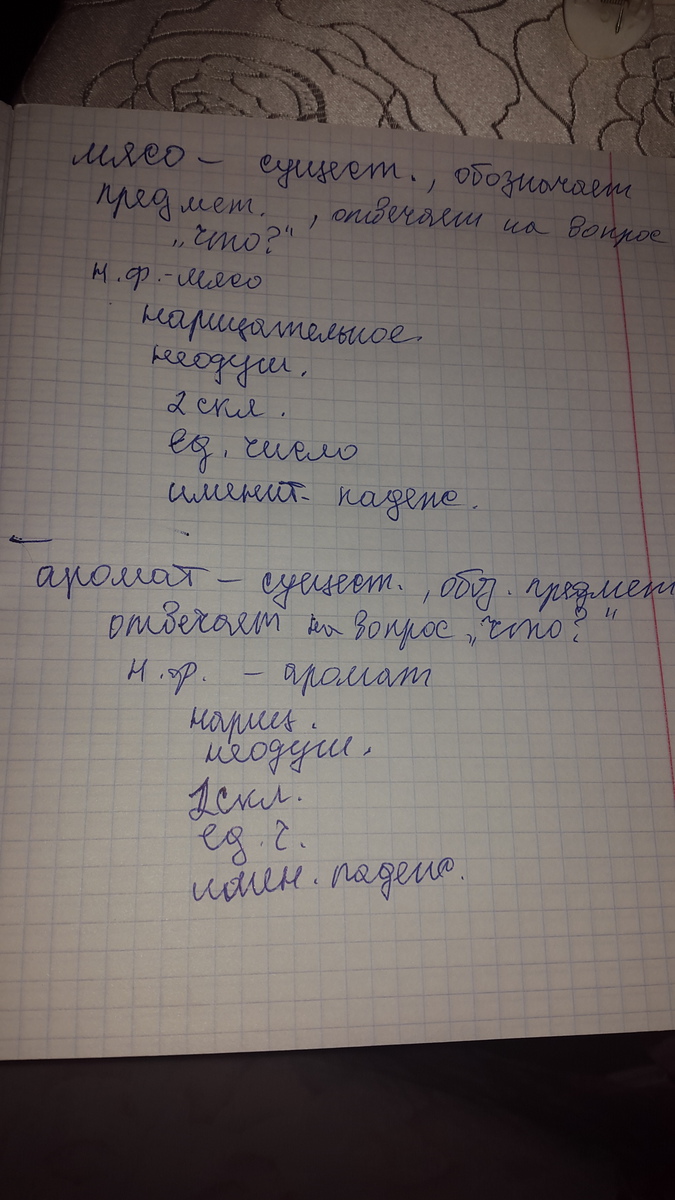 мясо – сущест., обозначает
предмет. , отвечает на вопрос
„что?"
н.ф.-мясо
нарицательное.
неодуш.
2 скл.
ед. число
именит- падеж.
аромат – сущест. , обоз. предмет
отвечает на вопрос „что?"
н.ф. – аромат
нариц.
неодуш.
2скл.
ед.ч.
имен. падеж.